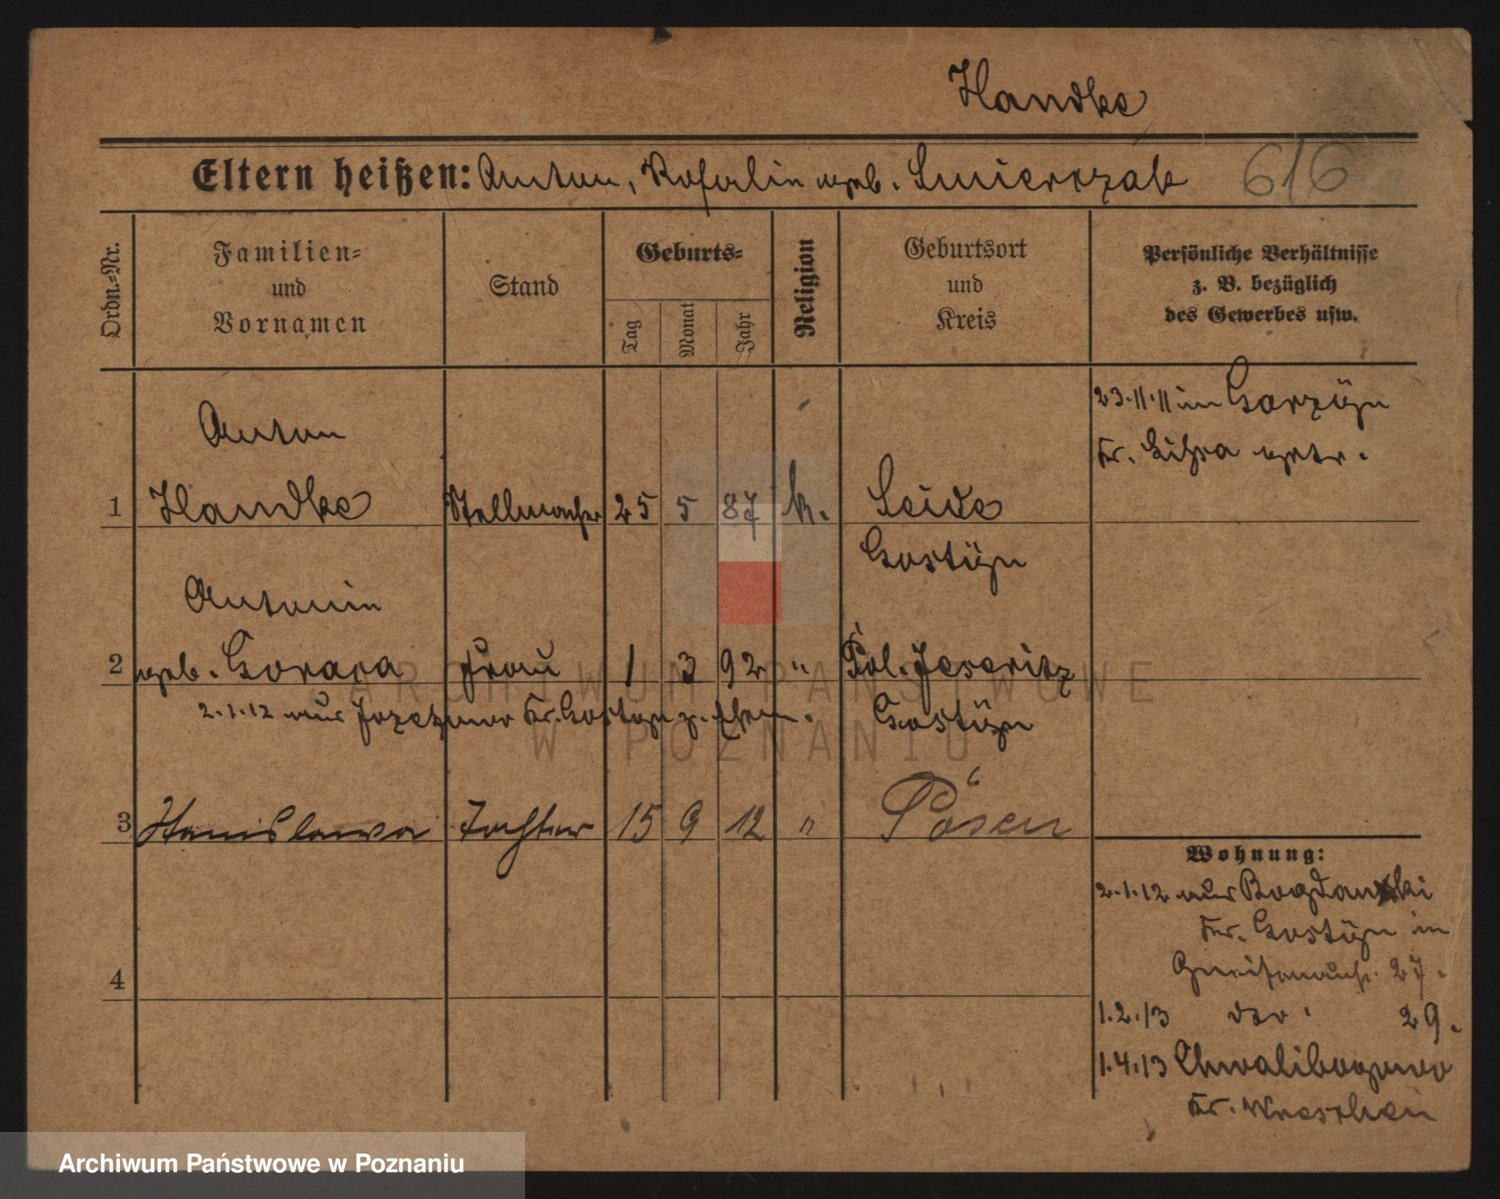 Handke
Eltern heißen: Anton, Rosalie geb. Smierzzak 616
Ordn.-Nr.
Familien-
und
Vornamen
Stand
Geburts-
Tag
Monat
Jahr
Religion
Geburtsort
und
Kreis
Persönliche Verhältnisse
z. B. bezüglich
des Gewerbes usw.
Anton
1 Handke Stellmacher 25 5 87 k. Seide
Gostÿn
23.11.11 in Gorzÿn
Kr. getr.
Antonin
2 geb. Gorara Frau 1 3 92 " Pol. Jeseritz
2.1.12 aus Kr. Gostyn z.
Gostÿn
3 Stanislawa Tochter 15 9 12 " Posen
4
Wohnung:
2.1.12 aus Bogdanski
Kr. Gostÿn in
Gneisenaustr. 27.
1.2.13 dto. 29.
1.4.13 Chwalibogowo
Kr. Wreschen
ARCHIWUM PAŃSTWOWE
W POZNANIU
Archiwum Państwowe w Poznaniu